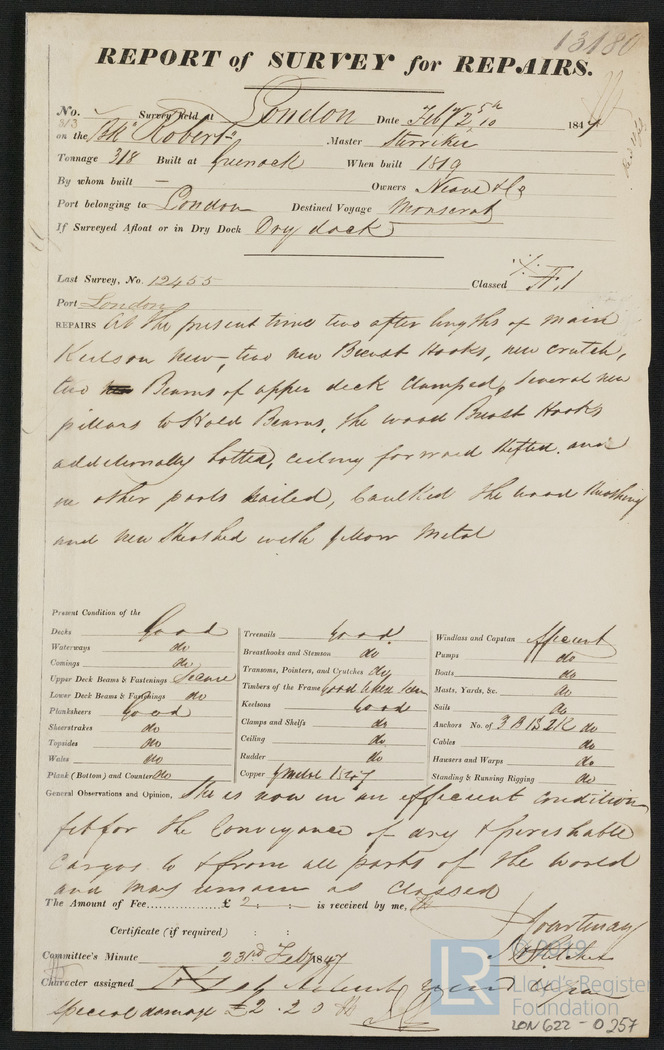 13180
REPORT of SURVEY for REPAIRS.
No. 313 Survey held at London Date Feby 5th 10 1847
on the Bk "Roberts" Master
Tonnage 318 Built at Greenock When built 1819
By whom built — Owners Neave & Co
Port belonging to London Destined Voyage Monserat
If Surveyed Afloat or in Dry Dock Dry dock
Last Survey, No. 12455 Classed Æ.1
Port London
REPAIRS At the present time two after lengths of main
Keelson new, two new Breast Hooks, new crutch,
two Beams of upper deck clamped, several new
pillars to Hold Beams, the wood Breast Hooks
additionally bolted, ceiling forward shifted, and
in other parts nailed, Caulked the wood sheathing
and new sheathed with yellow Metal
Present Condition of the
Decks Good
Waterways do
Comings do
Upper Deck Beams & Fastenings Secure
Lower Deck Beams & Fastenings do
Planksheers Good
Sheerstrakes do
Topsides do
Wales do
Plank (Bottom) and Counter do
Treenails Good
Breasthooks and Stemson do
Transoms, Pointers, and Crutches do
Timbers of the Frame Good where seen
Keelsons Good
Clamps and Shelfs do
Ceiling do
Rudder do
Copper y metal 1847
Windlass and Capstan Efficient
Pumps do
Boats do
Masts, Yards, &c. do
Sails do
Anchors No. of 3 B 1 S 2 K do
Cables do
Hausers and Warps do
Standing & Running Rigging do
General Observations and Opinion, She is now in an efficient condition
fit for the Conveyance of dry & perishable
Cargos to & from all parts of the World
and may remain as Classed
The Amount of Fee £ 2 : : is received by me,
Courtenay
Certificate (if required) : :
Committee's Minute 23rd Feby 1847
Character assigned
Special damage £2.2.0
LR
© 2019
Lloyd's Register
Foundation
LON 622 - 0257